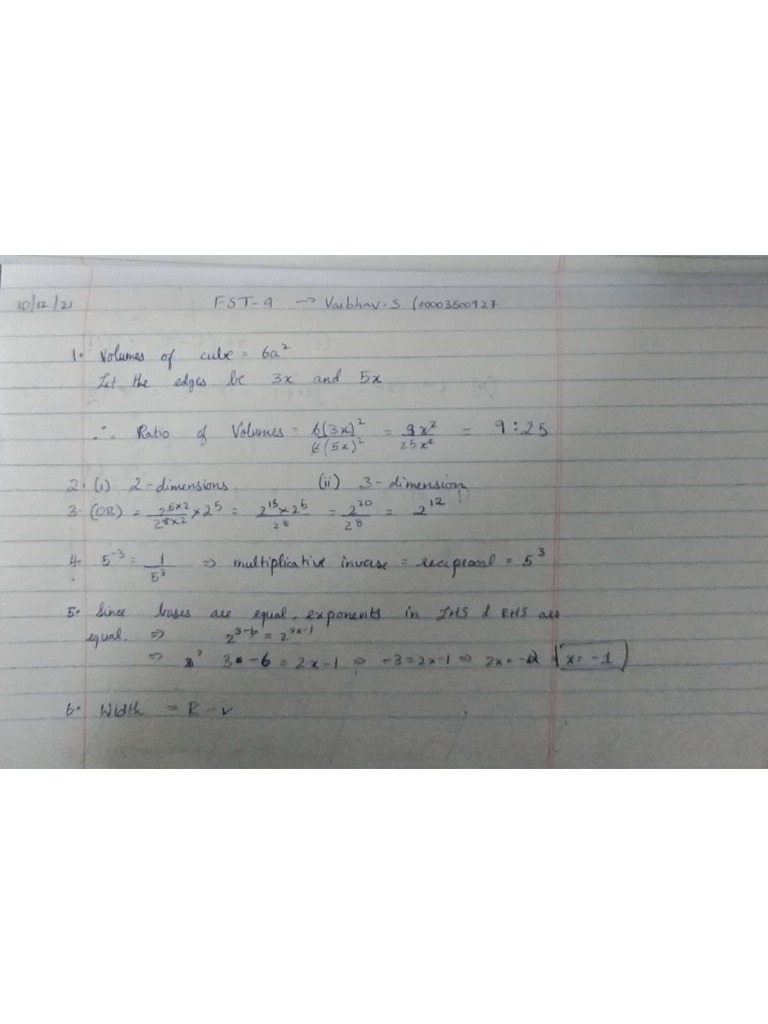 10/12/21 FST-9 → Vaibhav.S (00003500927
1. Volumes of cube = 6a²
Let the edges be 3x and 5x
∴ Ratio of Volumes = 6(3x)²/6(5x)² = 9x²/25x² = 9:25
2. (i) 2-dimensions (ii) 3-dimension
3. (OR) = × 2⁵ = 2¹⁵×2⁵/2⁸ = 2²⁰/2⁸ = 2¹²
4. 5⁻³ = 1/5³ ⇒ multiplicative inverse = reciprocal = 5³
5. Since bases are equal, exponents in LHS & RHS are
equal. ⇒ 2³⁻⁶ = 2²ˣ⁻¹
⇒ 3 - 6 = 2x - 1 ⇒ -3 = 2x - 1 ⇒ 2x = -2 x = -1
6. Width = R - r